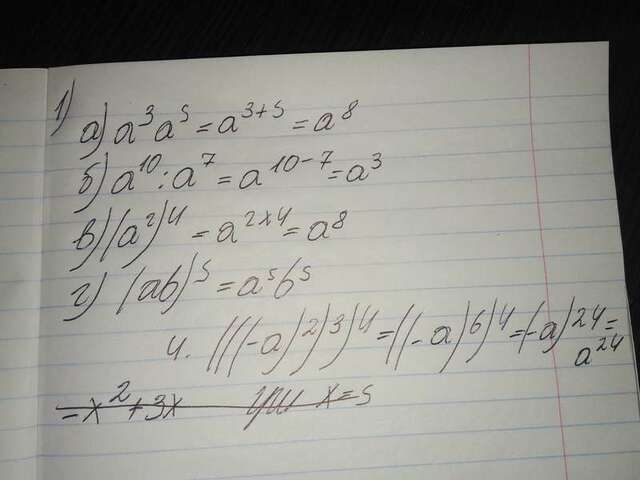 1)
а) a³a⁵ = a³⁺⁵ = a⁸
б) a¹⁰ : a⁷ = a¹⁰⁻⁷ = a³
в) (a²)⁴ = a²ˣ⁴ = a⁸
г) (ab)⁵ = a⁵b⁵
4. (((-a)²)³)⁴ = ((-a)⁶)⁴ = (-a)²⁴ =
a²⁴
-x² + 3x при x = 5